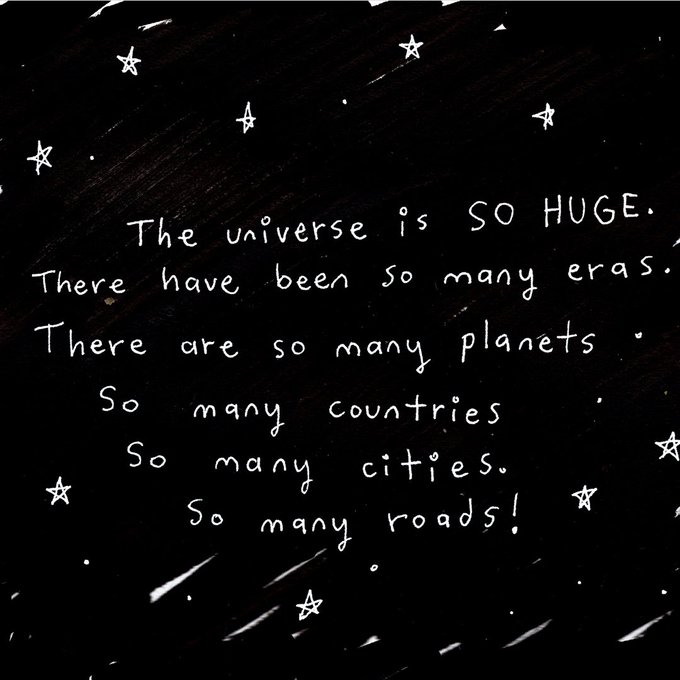 The universe is SO HUGE.
There have been so many eras.
There are so many planets.
So many countries
So many cities.
So many roads!